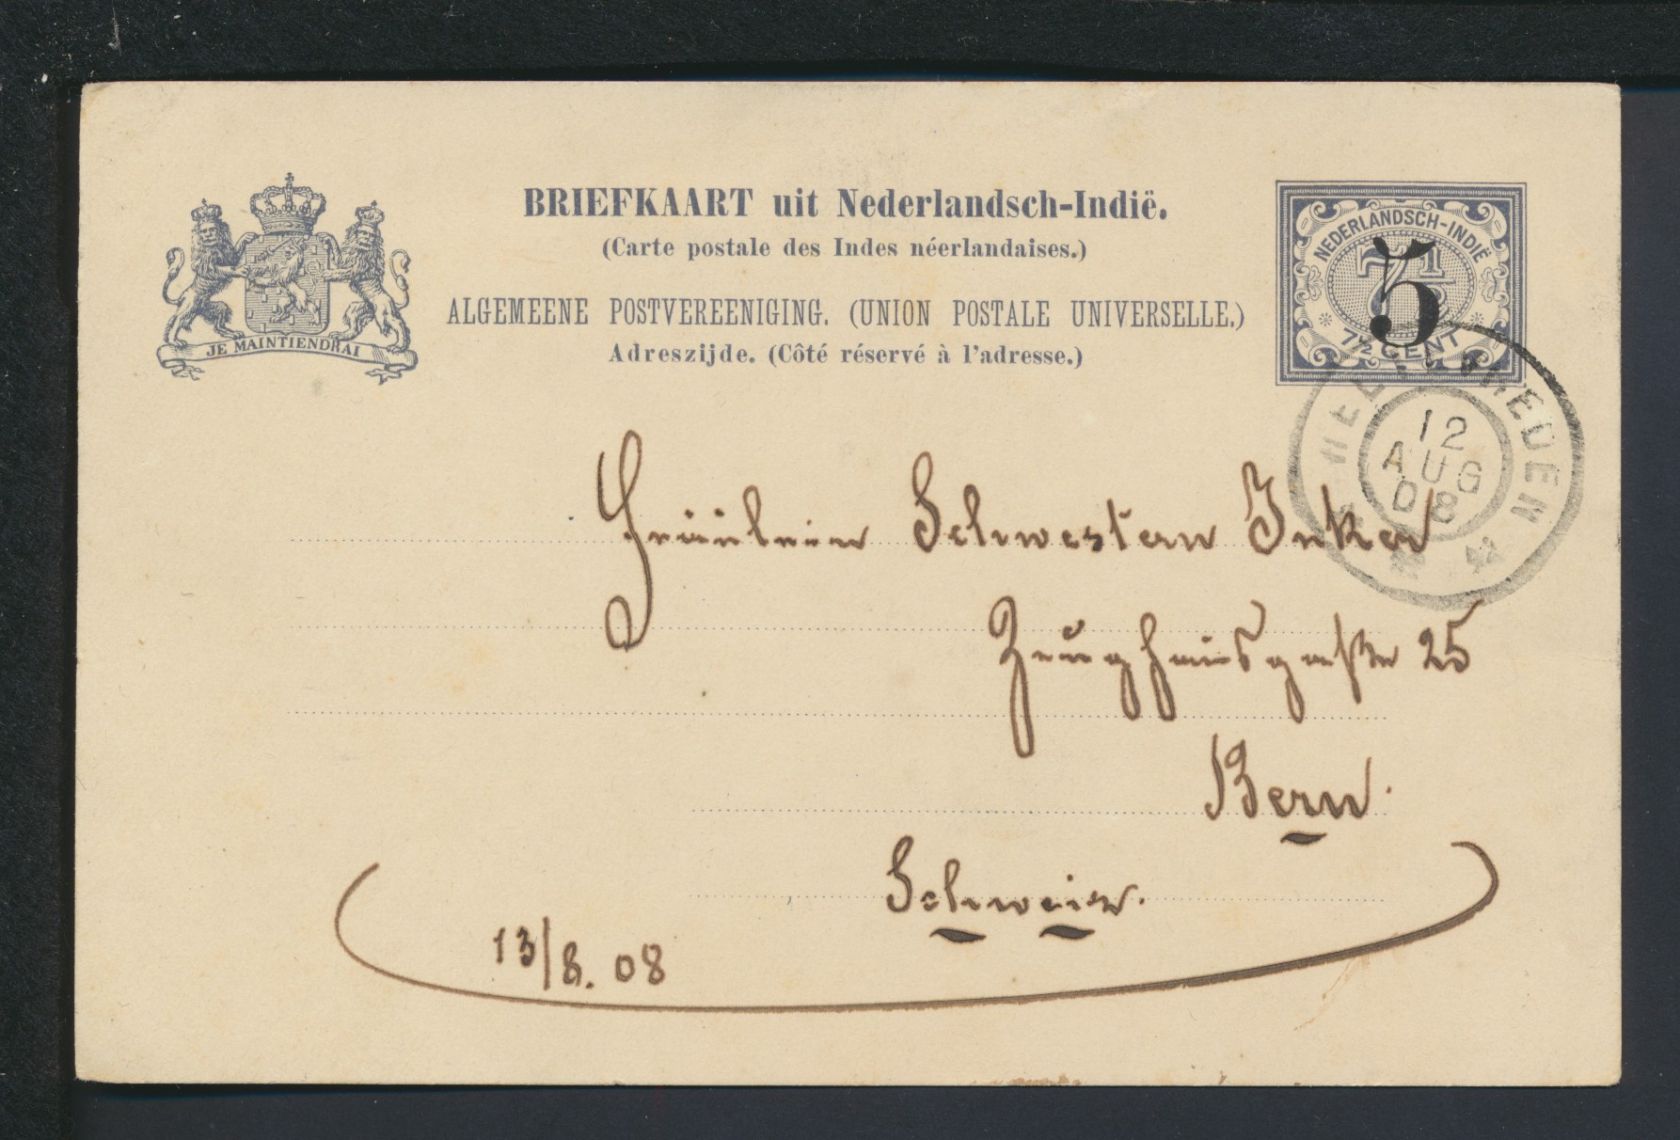 BRIEFKAART uit Nederlandsch-Indië.
(Carte postale des Indes néerlandaises.)
ALGEMEENE POSTVEREENIGING. (UNION POSTALE UNIVERSELLE.)
Adreszijde. (Côté réservé à l'adresse.)
JE MAINTIENDRAI
NEDERLANDSCH-INDIË
7½
5
7½ CENT
12
AUG
08
Fräulein Schwestern
Zeughausgaße 25
Bern.
Schweiz.
13/8. 08